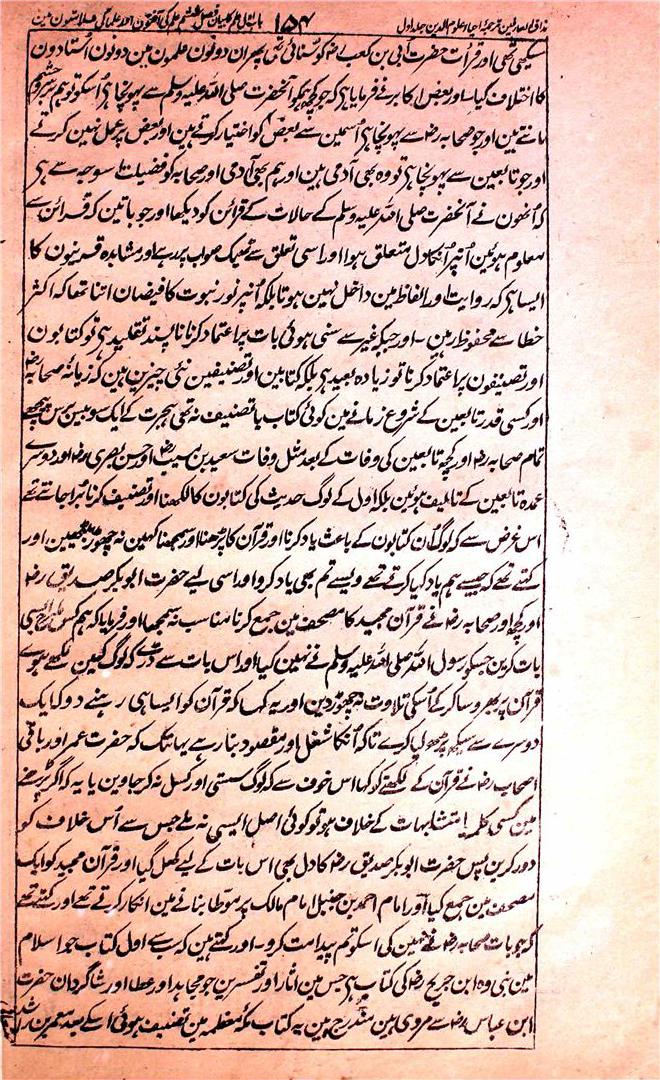 مذاق العارفین ترجمہ احیاء علوم الدین جلد اول ۱۵۴ باب اول علم کا بیان فصل ششم علم کی آفتون اور علماء کی علامتون مین
سیکھی تھی اور قرأت حضرت ابی بن کعب رضہ کو سنائی تھی پھر ان دونون علمون مین دونون استادون
کا اختلاف کیا۔ اور بعض اکابر نے فرمایا ہے کہ جو کچھ ہمکو آنحضرت صلی اللہ علیہ وسلم سے پہونچا ہے اسکو تو ہم بسر و چشم
مانتے ہین اور جو صحابہ رضہ سے پہونچا ہے اسمین سے بعض کو اختیار کرتے ہین اور بعض پر عمل نہین کرتے
اور جو تابعین سے پہونچا ہے تو وہ بھی آدمی ہین اور ہم بھی آدمی اور صحابہ کو فضیلت اسوجہ سے ہے
کہ انھون نے آنحضرت صلی اللہ علیہ وسلم کے حالات کے قرائن کو دیکھا اور جو باتین کہ قرائن سے
معلوم ہوئین انپر انکا دل متعلق ہوا اور اسی تعلق سے ٹھیک صواب پر رہے اور مشاہدہ قرینون کا
ایسا ہے کہ روایت اور الفاظ مین داخل نہین ہوتا بلکہ انپر نور نبوت کا فیضان اتنا تھا کہ اکثر
خطا سے محفوظ رہین۔ اور جبکہ غیر سے سنی ہوئی بات پر اعتماد کرنا ناپسند تقلید ہے تو کتابون
اور تصنیفون پر اعتماد کرنا تو زیادہ بعید ہے بلکہ کتابین اور تصنیفین نئی چیزین ہین کہ زمانہ صحابہ رضہ
اور کسی قدر تابعین کے شروع زمانے مین کوئی کتاب یا تصنیف نہ تھی ہجرت کے ایک سو بیس برس پیچھے
تمام صحابہ رضہ اور کچھ تابعین کی وفات کے بعد مثل وفات سعید بن مسیب رضہ اور حسن بصری رضہ اور دوسرے
عمدہ تابعین کے تالیف ہوئین بلکہ اول کے لوگ حدیث کی کتابون کا لکھنا اور تصنیف کرنا برا جانتے تھے
اس غرض سے کہ لوگ ان کتابون کے باعث یاد کرنا اور قرآن کا پڑھنا اور سمجھنا کہین نہ چھوڑ بیٹھین اور
کہتے تھے کہ جیسے ہم یاد کیا کرتے تھے ویسے تم بھی یاد کرو اور اسی لیے حضرت ابوبکر صدیق رضہ
اور کچھ اور صحابہ رضہ نے قرآن مجید کا مصحف مین جمع کرنا مناسب نہ سمجھا اور فرمایا کہ ہم کس طرح ایسی
بات کرین جسکو رسول اللہ صلی اللہ علیہ وسلم نے نہین کیا اور اس بات سے ڈرے کہ لوگ کہین لکھے ہوے
قرآن پر بھروسا کرکے اسکی تلاوت نہ چھوڑ دین اور یہ کہا کہ قرآن کو ایسا ہی رہنے دو کہ ایک
دوسرے سے سیکھ پڑھ لیا کرے تاکہ انکا شغل اور مقصود بنا رہے یہانتک کہ حضرت عمر اور باقی
اصحاب رضہ نے قرآن کے لکھنے کو کہا اس خوف سے کہ لوگ سستی اور کسل نہ کر جاوین یا یہ کہ اگر پڑھنے
مین کسی کلمہ یا متشابہات کے خلاف ہو تو کوئی اصل ایسی نہ ملے جس سے اُس خلاف کو
دور کرین پس حضرت ابوبکر صدیق رضہ کا دل بھی اس بات کے لیے کھل گیا اور قرآن مجید کو ایک
مصحف مین جمع کیا اور امام احمد بن حنبل امام مالک پر موطا بنانے مین انکار کرتے تھے اور کہتے تھے
کہ جو بات صحابہ رضہ نے نہین کی اسکو تم پیدا مت کرو۔ اور کہتے ہین کہ سب سے اول کتاب جو اسلام
مین بنی وہ ابن جریج رضہ کی کتاب ہے جس مین آثار اور تفسیرین جو مجاہد اور عطا اور شاگردان حضرت
ابن عباس رضہ سے مروی ہین مندرج ہین یہ کتاب مکہ معظمہ مین تصنیف ہوئی اسکے بعد معمر بن راشد